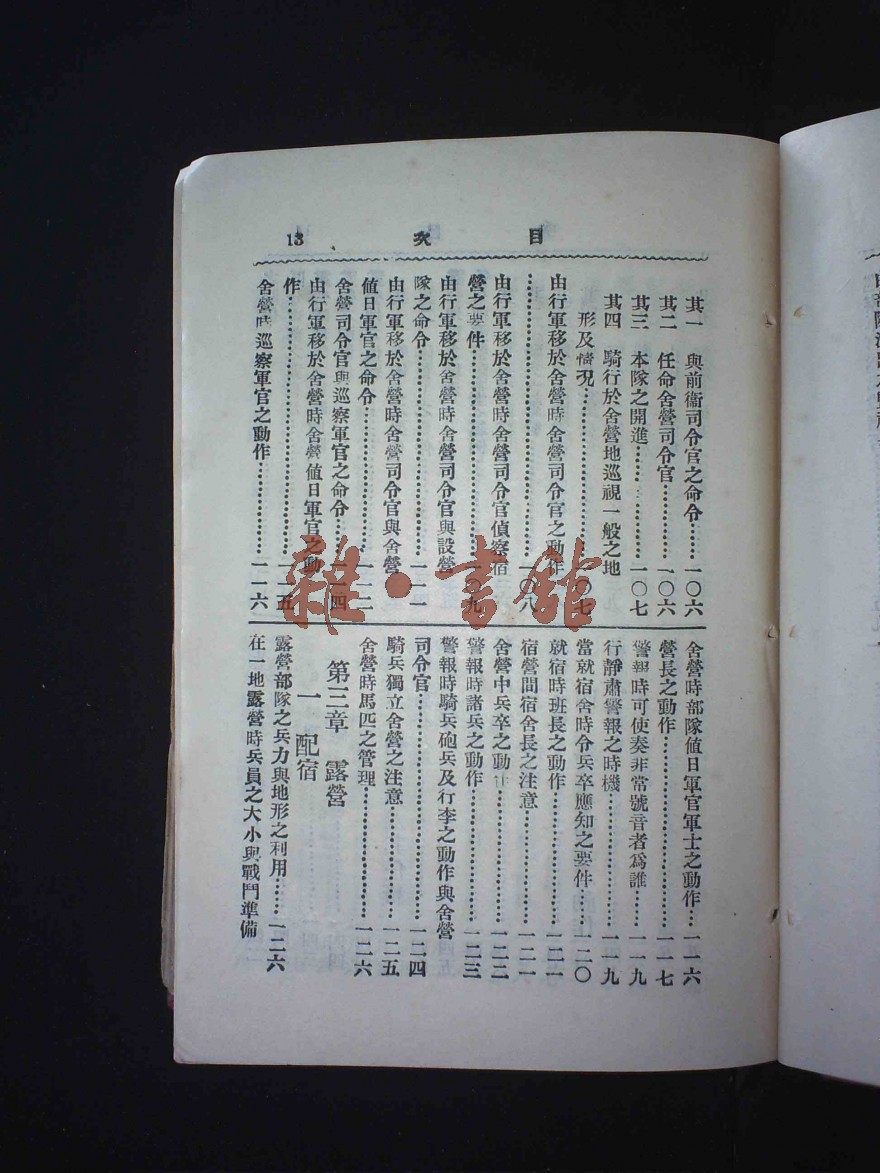 目次 13
其一 與前衞司令官之命令……一〇六
其二 任命舍營司令官…………一〇六
其三 本隊之開進………………一〇七
其四 騎行於舍營地巡視一般之地
形及情況…………………一〇七
由行軍移於舍營時舍營司令官之動作
……………………………一〇八
由行軍移於舍營時舍營司令官偵察宿
營之要件…………………一〇九
由行軍移於舍營時舍營司令官與設營
隊之命令…………………一一一
由行軍移於舍營時舍營司令官與舍營
値日軍官之命令…………一一二
舍營司令官與巡察軍官之命令…一一四
由行軍移於舍營時舍營値日軍官之動
作…………………………一一五
舍營時巡察軍官之動作…………一一六
舍營時部隊値日軍官軍士之動作…一一六
營長之動作………………………一一七
警報時可使奏非常號音者爲誰……一一九
行靜肅警報之時機………………一一九
當就宿舍時令兵卒應知之要件……一二〇
就宿時班長之動作………………一二一
宿營間宿舍長之注意……………一二一
舍營中兵卒之動作………………一二二
警報時諸兵之動作………………一二三
警報時騎兵砲兵及行李之動作與舍營
司令官……………………………一二四
騎兵獨立舍營之注意……………一二五
舍營時馬匹之管理………………一二六
第三章 露營
一 配宿
露營部隊之兵力與地形之利用……一二六
在一地露營時兵員之大小與戰鬥準備
雜·書館